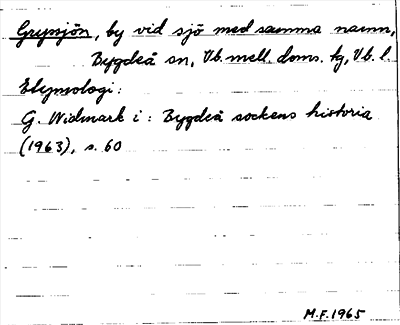 Gryssjön, by vid sjö med samma namn,
Bygdeå sn, Vb. mell. doms. tg, Vb. l.
Etymologi:
G. Widmark i: Bygdeå sockens historia
(1963), s. 60
M.F. 1965